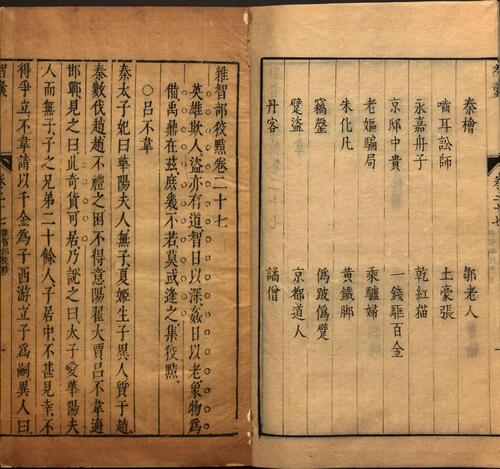 秦檜　鄒老人
嚙耳訟師　土豪張
永嘉舟子　乾紅猫
京邸中貴　一錢驅百金
老嫗騙局　乘驢婦
朱化凡　黃鐵脚
竊磬　僞跛僞躄
躄盜　京都道人
丹客　譎僧
雜智部狡黠卷二十七
英雄欺人盜亦有道智日以深姦日以老象物爲
備禹鼎在茲庶幾不若莫或逢之集狡黠
○呂不韋
秦太子妃曰華陽夫人無子夏姬生子異人質于趙
秦數伐趙趙不禮之困不得意陽翟大賈呂不韋適
邯鄲見之曰此奇貨可居乃說之曰太子愛華陽夫
人而無子子之兄弟二十餘人子居中不甚見幸不
得爭立不韋請以千金爲子西游立子爲嗣異人曰
智囊
卷二十七